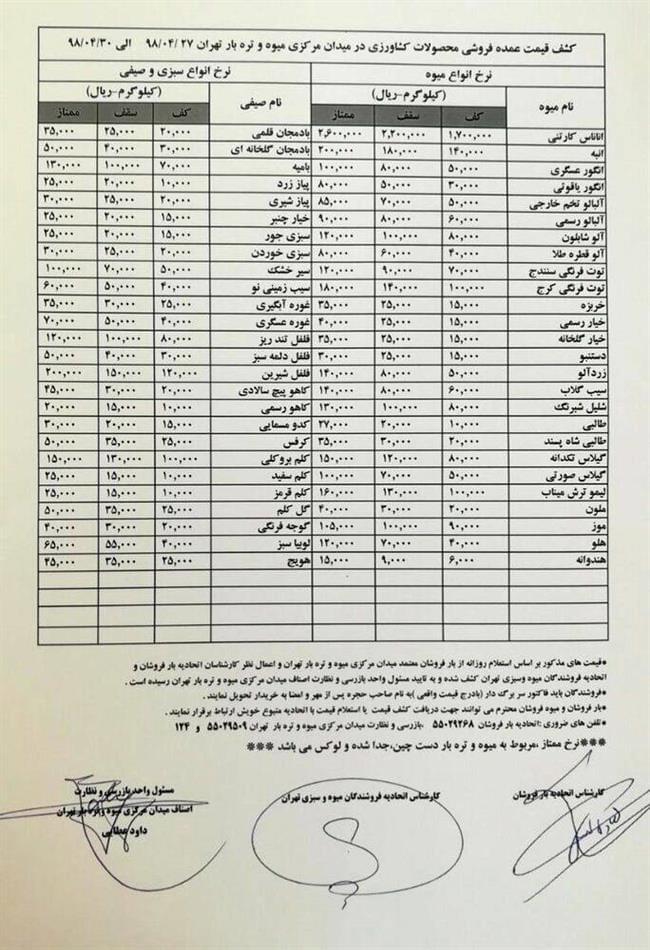 کشف قیمت عمده فروشی محصولات کشاورزی در میدان مرکزی میوه و تره بار تهران ۹۸/۰۴/۲۷ الی ۹۸/۰۴/۳۰
نرخ انواع میوه نرخ انواع سبزی و صیفی
نام میوه (کیلوگرم-ریال) نام صیفی (کیلوگرم-ریال)
کف سقف ممتاز کف سقف ممتاز
اناناس کارتنی ۱,۷۰۰,۰۰۰ ۲,۲۰۰,۰۰۰ ۲,۶۰۰,۰۰۰ بادمجان قلمی ۲۰,۰۰۰ ۲۵,۰۰۰ ۳۵,۰۰۰
انبه ۱۴۰,۰۰۰ ۱۸۰,۰۰۰ ۲۰۰,۰۰۰ بادمجان گلخانه ای ۳۰,۰۰۰ ۴۰,۰۰۰ ۵۰,۰۰۰
انگور عسگری ۵۰,۰۰۰ ۸۰,۰۰۰ ۱۰۰,۰۰۰ بامیه ۷۰,۰۰۰ ۱۰۰,۰۰۰ ۱۳۰,۰۰۰
انگور یاقوتی ۳۰,۰۰۰ ۵۰,۰۰۰ ۸۰,۰۰۰ پیاز زرد ۱۰,۰۰۰ ۲۰,۰۰۰ ۲۵,۰۰۰
آلبالو تخم خارجی ۵۰,۰۰۰ ۷۰,۰۰۰ ۸۵,۰۰۰ پیاز شیری ۲۰,۰۰۰ ۲۵,۰۰۰ ۳۰,۰۰۰
آلبالو رسمی ۶۰,۰۰۰ ۸۰,۰۰۰ ۹۰,۰۰۰ خیار چنبر ۱۵,۰۰۰ ۲۰,۰۰۰ ۲۵,۰۰۰
آلو شابلون ۸۰,۰۰۰ ۱۰۰,۰۰۰ ۱۲۰,۰۰۰ سبزی جور ۱۵,۰۰۰ ۲۰,۰۰۰ ۲۵,۰۰۰
آلو قطره طلا ۴۰,۰۰۰ ۶۰,۰۰۰ ۸۰,۰۰۰ سبزی خوردن ۲۰,۰۰۰ ۲۵,۰۰۰ ۳۰,۰۰۰
توت فرنگی سنندج ۷۰,۰۰۰ ۹۰,۰۰۰ ۱۲۰,۰۰۰ سیر خشک ۵۰,۰۰۰ ۷۰,۰۰۰ ۱۰۰,۰۰۰
توت فرنگی کرج ۱۰۰,۰۰۰ ۱۴۰,۰۰۰ ۱۸۰,۰۰۰ سیب زمینی نو ۴۰,۰۰۰ ۵۰,۰۰۰ ۶۰,۰۰۰
خربزه ۱۵,۰۰۰ ۲۵,۰۰۰ ۳۵,۰۰۰ غوره آبگیری ۲۵,۰۰۰ ۳۰,۰۰۰ ۳۵,۰۰۰
خیار رسمی ۱۵,۰۰۰ ۲۵,۰۰۰ ۴۰,۰۰۰ غوره عسگری ۴۰,۰۰۰ ۵۰,۰۰۰ ۷۰,۰۰۰
خیار گلخانه ۱۵,۰۰۰ ۲۵,۰۰۰ ۳۵,۰۰۰ فلفل تند ریز ۸۰,۰۰۰ ۱۰۰,۰۰۰ ۱۲۰,۰۰۰
دستنبو ۱۵,۰۰۰ ۲۵,۰۰۰ ۳۰,۰۰۰ فلفل دلمه سبز ۳۰,۰۰۰ ۴۰,۰۰۰ ۵۰,۰۰۰
زردآلو ۵۰,۰۰۰ ۸۰,۰۰۰ ۱۴۰,۰۰۰ فلفل شیرین ۱۲۰,۰۰۰ ۱۵۰,۰۰۰ ۲۰۰,۰۰۰
سیب گلاب ۶۰,۰۰۰ ۸۰,۰۰۰ ۱۴۰,۰۰۰ کاهو پیچ سالادی ۲۰,۰۰۰ ۳۰,۰۰۰ ۴۵,۰۰۰
شلیل شبرنگ ۸۰,۰۰۰ ۱۰۰,۰۰۰ ۱۳۰,۰۰۰ کاهو رسمی ۱۰,۰۰۰ ۱۵,۰۰۰ ۲۰,۰۰۰
طالبی ۱۰,۰۰۰ ۲۰,۰۰۰ ۲۷,۰۰۰ کدو مسمایی ۱۵,۰۰۰ ۲۰,۰۰۰ ۳۰,۰۰۰
طالبی شاه پسند ۲۰,۰۰۰ ۳۰,۰۰۰ ۳۵,۰۰۰ کرفس ۲۵,۰۰۰ ۳۵,۰۰۰ ۵۰,۰۰۰
گیلاس تکدانه ۸۰,۰۰۰ ۱۲۰,۰۰۰ ۱۵۰,۰۰۰ کلم بروکلی ۱۰۰,۰۰۰ ۱۳۰,۰۰۰ ۱۵۰,۰۰۰
گیلاس صورتی ۵۰,۰۰۰ ۷۰,۰۰۰ ۱۰۰,۰۰۰ کلم سفید ۱۰,۰۰۰ ۱۵,۰۰۰ ۲۵,۰۰۰
لیمو ترش میناب ۱۰۰,۰۰۰ ۱۳۰,۰۰۰ ۱۶۰,۰۰۰ کلم قرمز ۱۰,۰۰۰ ۱۵,۰۰۰ ۲۵,۰۰۰
ملون ۲۰,۰۰۰ ۳۰,۰۰۰ ۴۰,۰۰۰ گل کلم ۲۵,۰۰۰ ۳۵,۰۰۰ ۵۰,۰۰۰
موز ۹۰,۰۰۰ ۱۰۰,۰۰۰ ۱۰۵,۰۰۰ گوجه فرنگی ۲۰,۰۰۰ ۳۰,۰۰۰ ۴۰,۰۰۰
هلو ۴۰,۰۰۰ ۷۰,۰۰۰ ۱۲۰,۰۰۰ لوبیا سبز ۴۰,۰۰۰ ۵۵,۰۰۰ ۶۵,۰۰۰
هندوانه ۶,۰۰۰ ۹,۰۰۰ ۱۵,۰۰۰ هویج ۲۵,۰۰۰ ۳۵,۰۰۰ ۴۵,۰۰۰
*قیمت های مذکور بر اساس استعلام روزانه از بار فروشان معتمد میدان مرکزی میوه و تره بار تهران و اعمال نظر کارشناسان اتحادیه بار فروشان و
اتحادیه فروشندگان میوه وسبزی تهران کشف شده و به تایید مسئول واحد بازرسی و نظارت اصناف میدان مرکزی میوه و تره بار تهران رسیده است .
*فروشندگان باید فاکتور سر برگ دار (بادرج قیمت واقعی )به نام صاحب حجره پس از مهر و امضا به خریدار تحویل نمایند .
*بار فروشان و میوه فروشان محترم می توانند جهت دریافت کشف قیمت یا استعلام قیمت با اتحادیه متبوع خویش ارتباط برقرار نمایند .
*تلفن های ضروری :اتحادیه بار فروشان ۵۵۰۲۹۲۶۸ ،بازرسی و نظارت میدان مرکزی میوه و تره بار تهران ۵۵۰۲۹۵۰۹ و ۱۲۴
***نرخ ممتاز ،مربوط به میوه و تره بار دست چین،جدا شده و لوکس می باشد ***
کارشناس اتحادیه بار فروشان کارشناس اتحادیه فروشندگان میوه و سبزی تهران مسئول واحد بازرسی و نظارت
اصناف میدان مرکزی میوه و تره بار تهران
داود عطایی